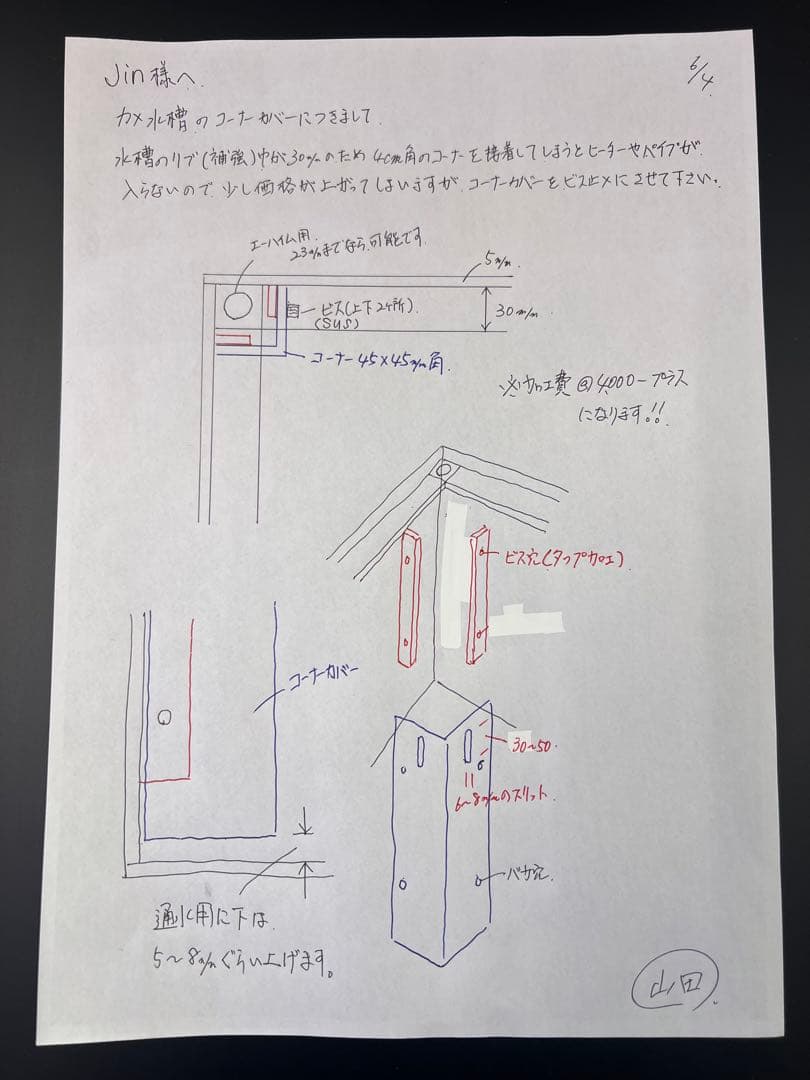 Jin様へ.
6/4
カメ水槽のコーナーカバーにつきまして.
水槽のリブ(補強)巾が30m/mのため4cm角のコーナーを接着してしまうとヒーターやパイプが.
入らないので少し価格が上がってしまいますがコーナーカバーをビス止メにさせて下さい。
エーハイム用.
23m/mまでなら可能です.
5m/m.
ビス(上下2ヶ所).
(SUS)
30m/m.
コーナー45×45m/m角.
※加工費@4,000-プラス
になります!!
ビス穴(タップ加工).
コーナーカバー
30~50.
6~8m/mのスリット.
バカ穴.
通水用に下は.
5~8m/mぐらい上げます。
山田.